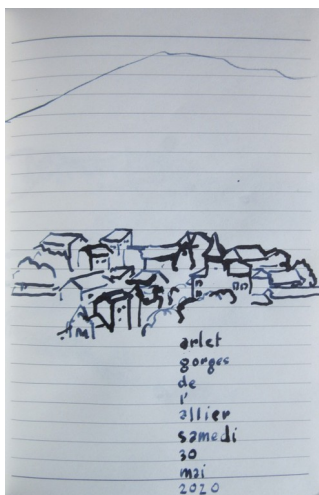 arlet
gorges
de
l'
allier
samedi
30
mai
2020